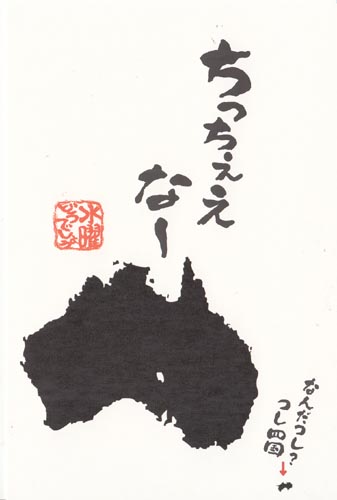 ちっちぇえ
なー
水曜
どうでしょう
なんだコレ?
コレ四国